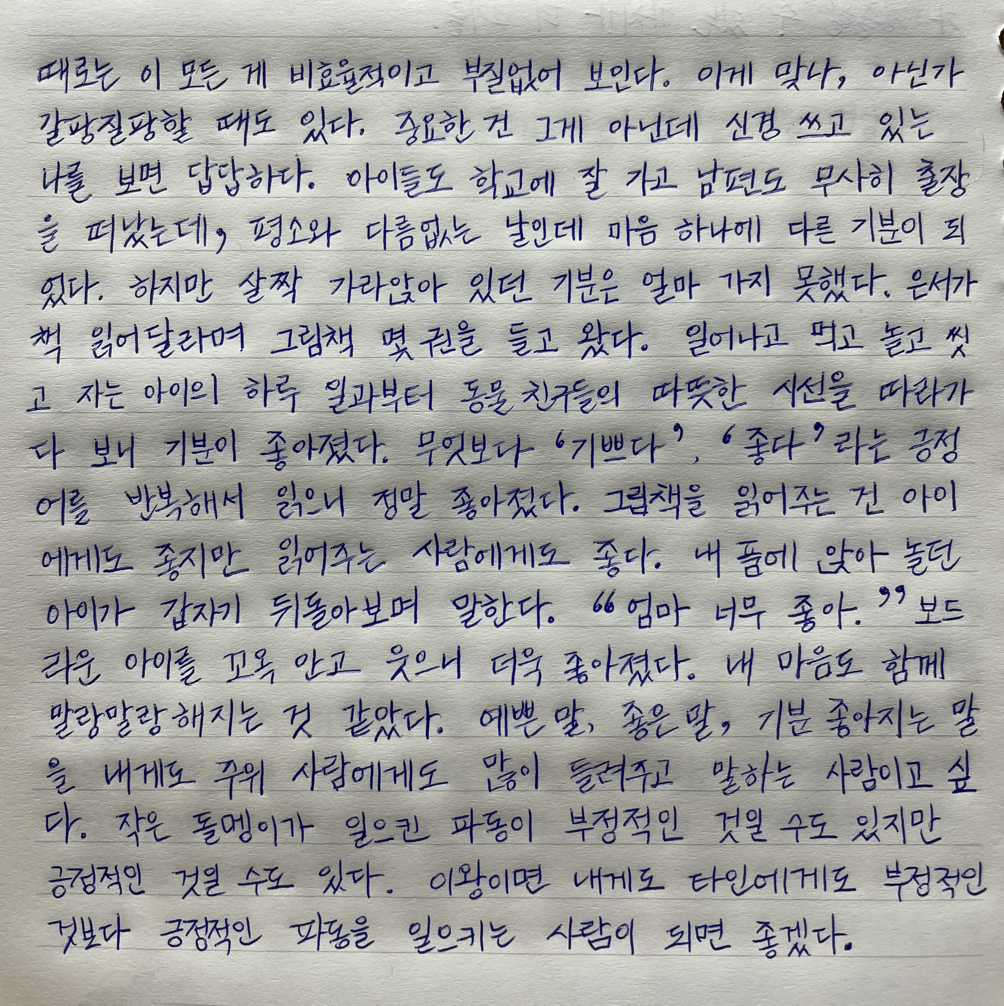 때로는 이 모든 게 비효율적이고 부질없어 보인다. 이게 맞나, 아닌가
갈팡질팡할 때도 있다. 중요한 건 그게 아닌데 신경 쓰고 있는
나를 보면 답답하다. 아이들도 학교에 잘 가고 남편도 무사히 출장
을 떠났는데, 평소와 다름없는 날인데 마음 하나에 다른 기분이 되
었다. 하지만 살짝 가라앉아 있던 기분은 얼마 가지 못했다. 은서가
책 읽어달라며 그림책 몇 권을 들고 왔다. 일어나고 먹고 놀고 씻
고 자는 아이의 하루 일과부터 동물 친구들의 따뜻한 시선을 따라가
다 보니 기분이 좋아졌다. 무엇보다 ‘기쁘다’, ‘좋다’라는 긍정
어를 반복해서 읽으니 정말 좋아졌다. 그림책을 읽어주는 건 아이
에게도 좋지만 읽어주는 사람에게도 좋다. 내 품에 앉아 놀던
아이가 갑자기 뒤돌아보며 말한다. “엄마 너무 좋아.” 보드
라운 아이를 꼬옥 안고 웃으니 더욱 좋아졌다. 내 마음도 함께
말랑말랑해지는 것 같았다. 예쁜 말, 좋은 말, 기분 좋아지는 말
을 내게도 주위 사람에게도 많이 들려주고 말하는 사람이고 싶
다. 작은 돌멩이가 일으킨 파동이 부정적인 것일 수도 있지만
긍정적인 것일 수도 있다. 이왕이면 내게도 타인에게도 부정적인
것보다 긍정적인 파동을 일으키는 사람이 되면 좋겠다.